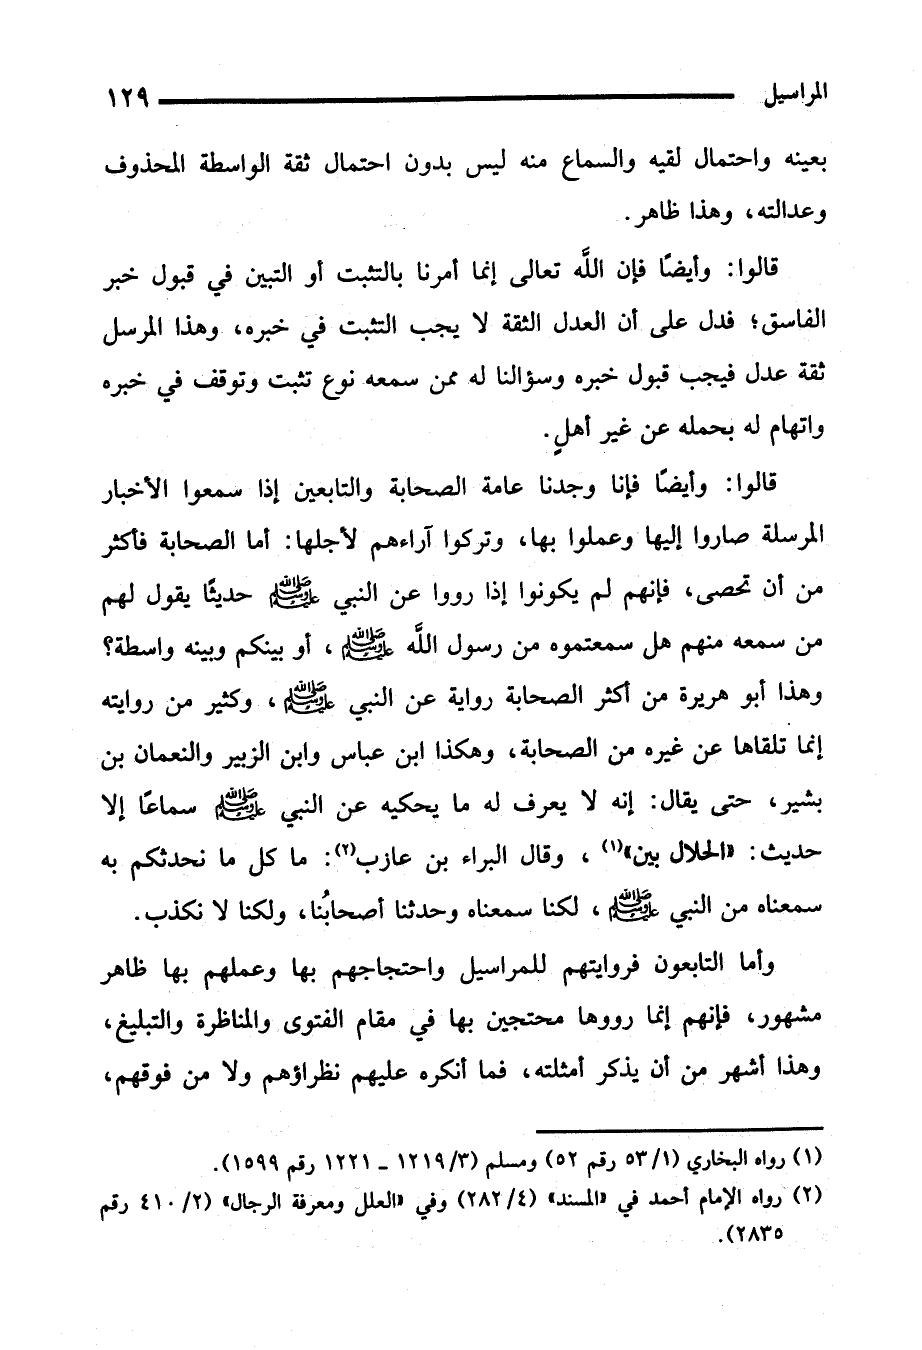 المراسيل ١٢٩
بعينه واحتمال لقيه والسماع منه ليس بدون احتمال ثقة الواسطة المحذوف
وعدالته، وهذا ظاهر.
قالوا: وأيضًا فإن اللَّه تعالى إنما أمرنا بالتثبت أو التبين في قبول خبر
الفاسق؛ فدل على أن العدل الثقة لا يجب التثبت في خبره، وهذا المرسل
ثقة عدل فيجب قبول خبره وسؤالنا له ممن سمعه نوع تثبت وتوقف في خبره
واتهام له بحمله عن غير أهلٍ.
قالوا: وأيضًا فإنا وجدنا عامة الصحابة والتابعين إذا سمعوا الأخبار
المرسلة صاروا إليها وعملوا بها، وتركوا آراءهم لأجلها: أما الصحابة فأكثر
من أن تحصى، فإنهم لم يكونوا إذا رووا عن النبي ﷺ حديثًا يقول لهم
من سمعه منهم هل سمعتموه من رسول اللَّه ﷺ، أو بينكم وبينه واسطة؟
وهذا أبو هريرة من أكثر الصحابة رواية عن النبي ﷺ، وكثير من روايته
إنما تلقاها عن غيره من الصحابة، وهكذا ابن عباس وابن الزبير والنعمان بن
بشير، حتى يقال: إنه لا يعرف له ما يحكيه عن النبي ﷺ سماعًا إلا
حديث: «الحلال بين»(١)، وقال البراء بن عازب(٢): ما كل ما نحدثكم به
سمعناه من النبي ﷺ، لكنا سمعناه وحدثنا أصحابُنا، ولكنا لا نكذب.
وأما التابعون فروايتهم للمراسيل واحتجاجهم بها وعملهم بها ظاهر
مشهور، فإنهم إنما رووها محتجين بها في مقام الفتوى والمناظرة والتبليغ،
وهذا أشهر من أن يذكر أمثلته، فما أنكره عليهم نظراؤهم ولا من فوقهم،
(١) رواه البخاري (١/ ٥٣ رقم ٥٢) ومسلم (٣/ ١٢١٩ ـ ١٢٢١ رقم ١٥٩٩).
(٢) رواه الإمام أحمد في «المسند» (٤/ ٢٨٢) وفي «العلل ومعرفة الرجال» (٢/ ٤١٠ رقم
٢٨٣٥).